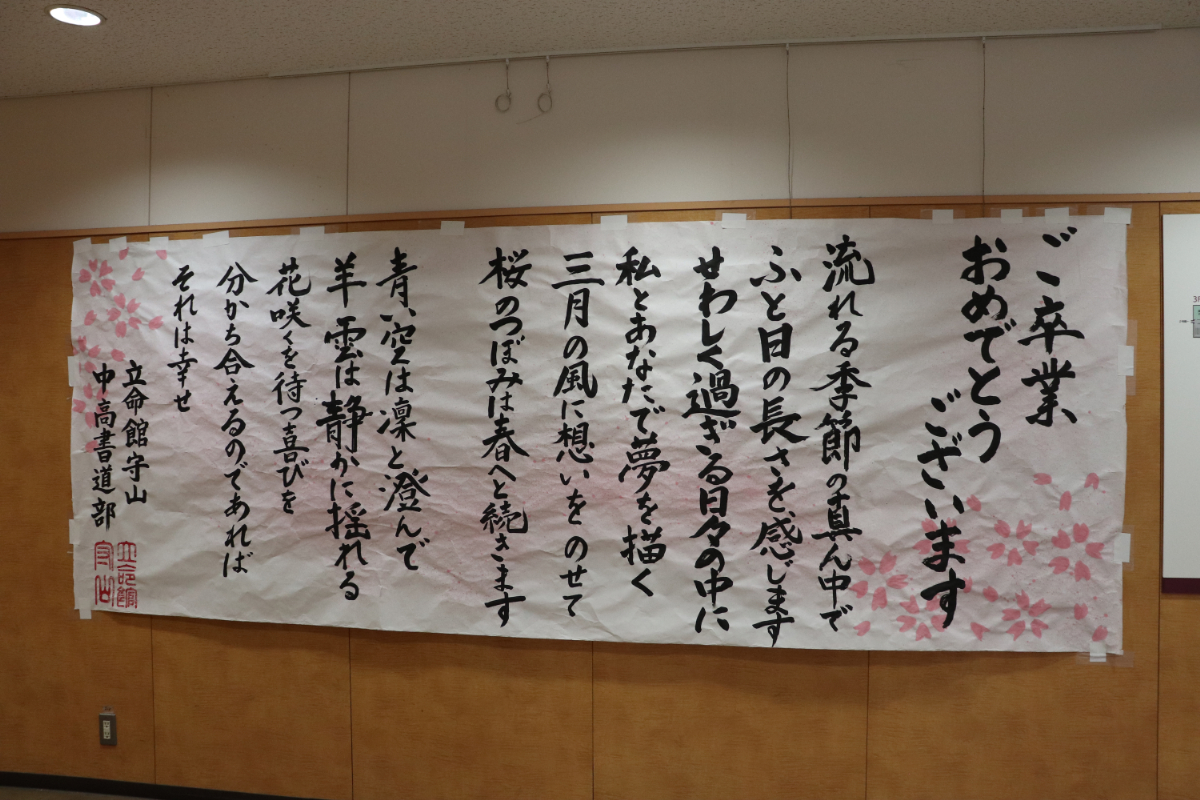 ご卒業
おめでとう
ございます
流れる季節の真ん中で
ふと日の長さを感じます
せわしく過ぎる日々の中に
私とあなたで夢を描く
三月の風に想いをのせて
桜のつぼみは春へと続きます
青い空は凛と澄んで
羊雲は静かに揺れる
花咲くを待つ喜びを
分かち合えるのであれば
それは幸せ
立命館守山
中高書道部
立命館
守山